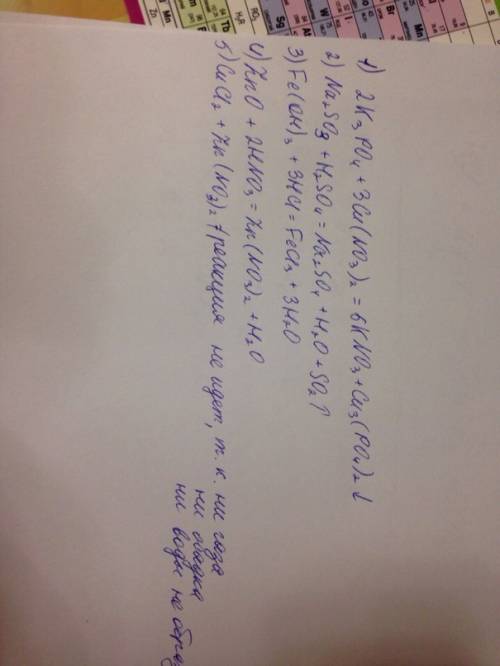 1) 2K₃PO₄ + 3Cu(NO₃)₂ = 6KNO₃ + Cu₃(PO₄)₂↓
2) Na₂SO₃ + H₂SO₄ = Na₂SO₄ + H₂O + SO₂↑
3) Fe(OH)₃ + 3HCl = FeCl₃ + 3H₂O
4) ZnO + 2HNO₃ = Zn(NO₃)₂ + H₂O
5) CuCl₂ + Zn(NO₃)₂ ≠ реакция не идет, т.к. ни газа
ни осадка
ни воды не